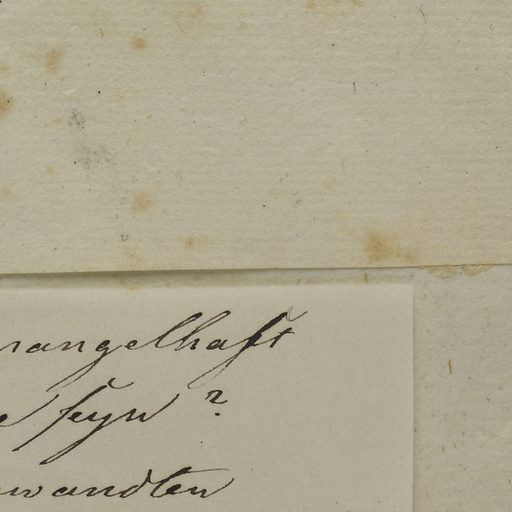 mangelhaft
seyn?
wandten